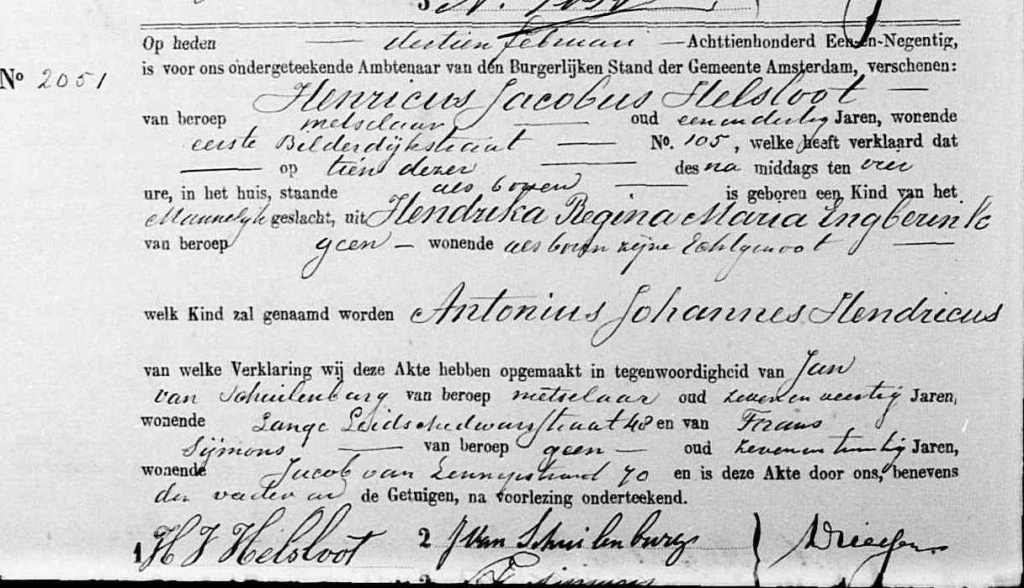 Op heden dertien februari Achttienhonderd Een-en-Negentig,
No 2051
is voor ons ondergeteekende Ambtenaar van den Burgerlijken Stand der Gemeente Amsterdam, verschenen:
Henricus Jacobus Helsloot
van beroep metselaar oud een en dertig Jaren, wonende
eerste Bilderdijkstraat No. 105, welke heeft verklaard dat
op tien dezer des na middags ten vier
ure, in het huis, staande als boven is geboren een Kind van het
Mannelijk geslacht, uit Hendrika Regina Maria Engberink
van beroep geen wonende als boven zijne Echtgenoot
welk Kind zal genaamd worden Antonius Johannes Hendricus
van welke Verklaring wij deze Akte hebben opgemaakt in tegenwoordigheid van Jan
van Schuilenburg van beroep metselaar oud zeven en veertig Jaren,
wonende Lange Leidschedwarsstraat 48 en van Frans
Sijmons van beroep geen oud zeven en twintig Jaren,
wonende Jacob van Lennepstraat 70 en is deze Akte door ons, benevens
den vader en de Getuigen, na voorlezing onderteekend.
1 H J Helsloot 2 J van Schuilenburg